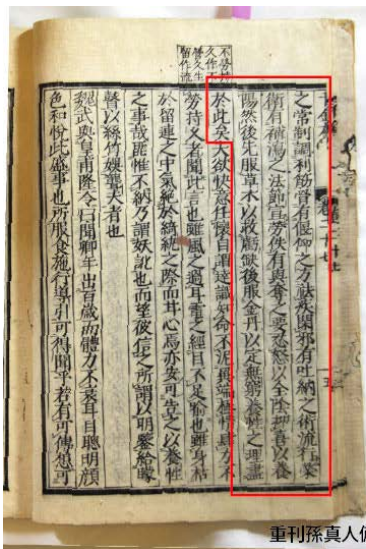 之常制調利筋骨有偃仰之方祛疾閑邪有吐納之術流行榮
衛有補瀉之法節宣勞佚有與奪之要忍怒以全陰抑喜以養
陽然後先服草木以救虧缺後服金丹以定無窮養性之理盡
於此矣夫欲快意任懷自謂達識知命不泥異端極情肆力不
勞持久者聞此言也雖風之過耳電之經目不足喻也雖身枯
於留連之中氣絕於綺紈之際而甘心焉亦安可告之以養性
之事哉匪惟不納乃謂妖訛也而望彼信之所謂以明鑒給矇
瞽以絲竹娛聾夫者也
魏武與皇甫隆令曰聞卿年出百歲而體力不衰耳目聰明顏
色和悅此盛事也所服食施行導引可得聞乎若有可傳想可
不勞持
久作不
營久生
留作流
重刊孫真人